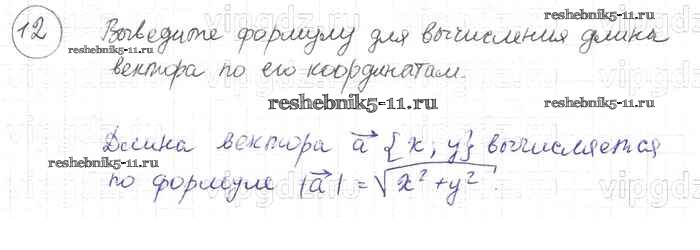 12 Выведите формулу для вычисления длины
вектора по его координатам.
reshebnik5-11.ru
reshebnik5-11.ru
reshebnik5-11.ru
reshebnik5-11.ru
Длина вектора a⃗ {x, y} вычисляется
по формуле |a⃗| = √x² + y².
reshebnik5-11.ru
reshebnik5-11.ru
vipgdz.ru